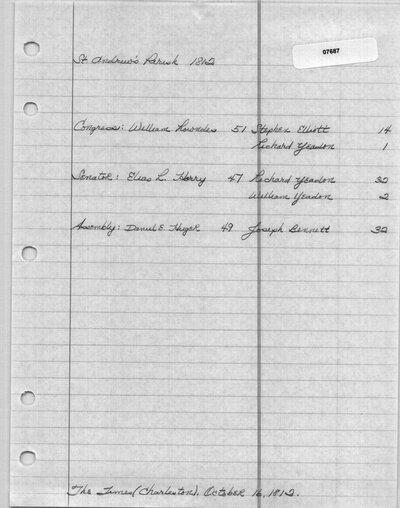 07687
St. Andrew's Parish 1812
Congress: William Lowndes 51 Stephen Elliott 14
Richard Yeadon 1
Senator: Elias L. Horry 47 Richard Yeadon 32
William Yeadon 2
Assembly: Daniel E. Huger 49 Joseph Bennett 32
The Times (Charleston). October 16, 1812.